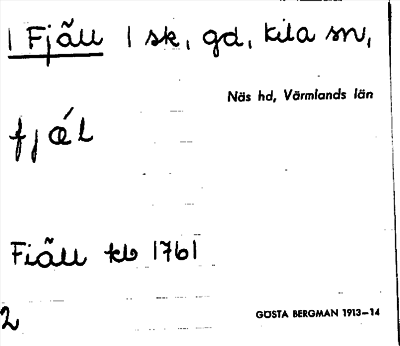 1 Fjäll 1 sk, gd, Kila sn,
Näs hd, Värmlands län
fjæ´l
Fiäll kb 1761
2
GÖSTA BERGMAN 1913–14